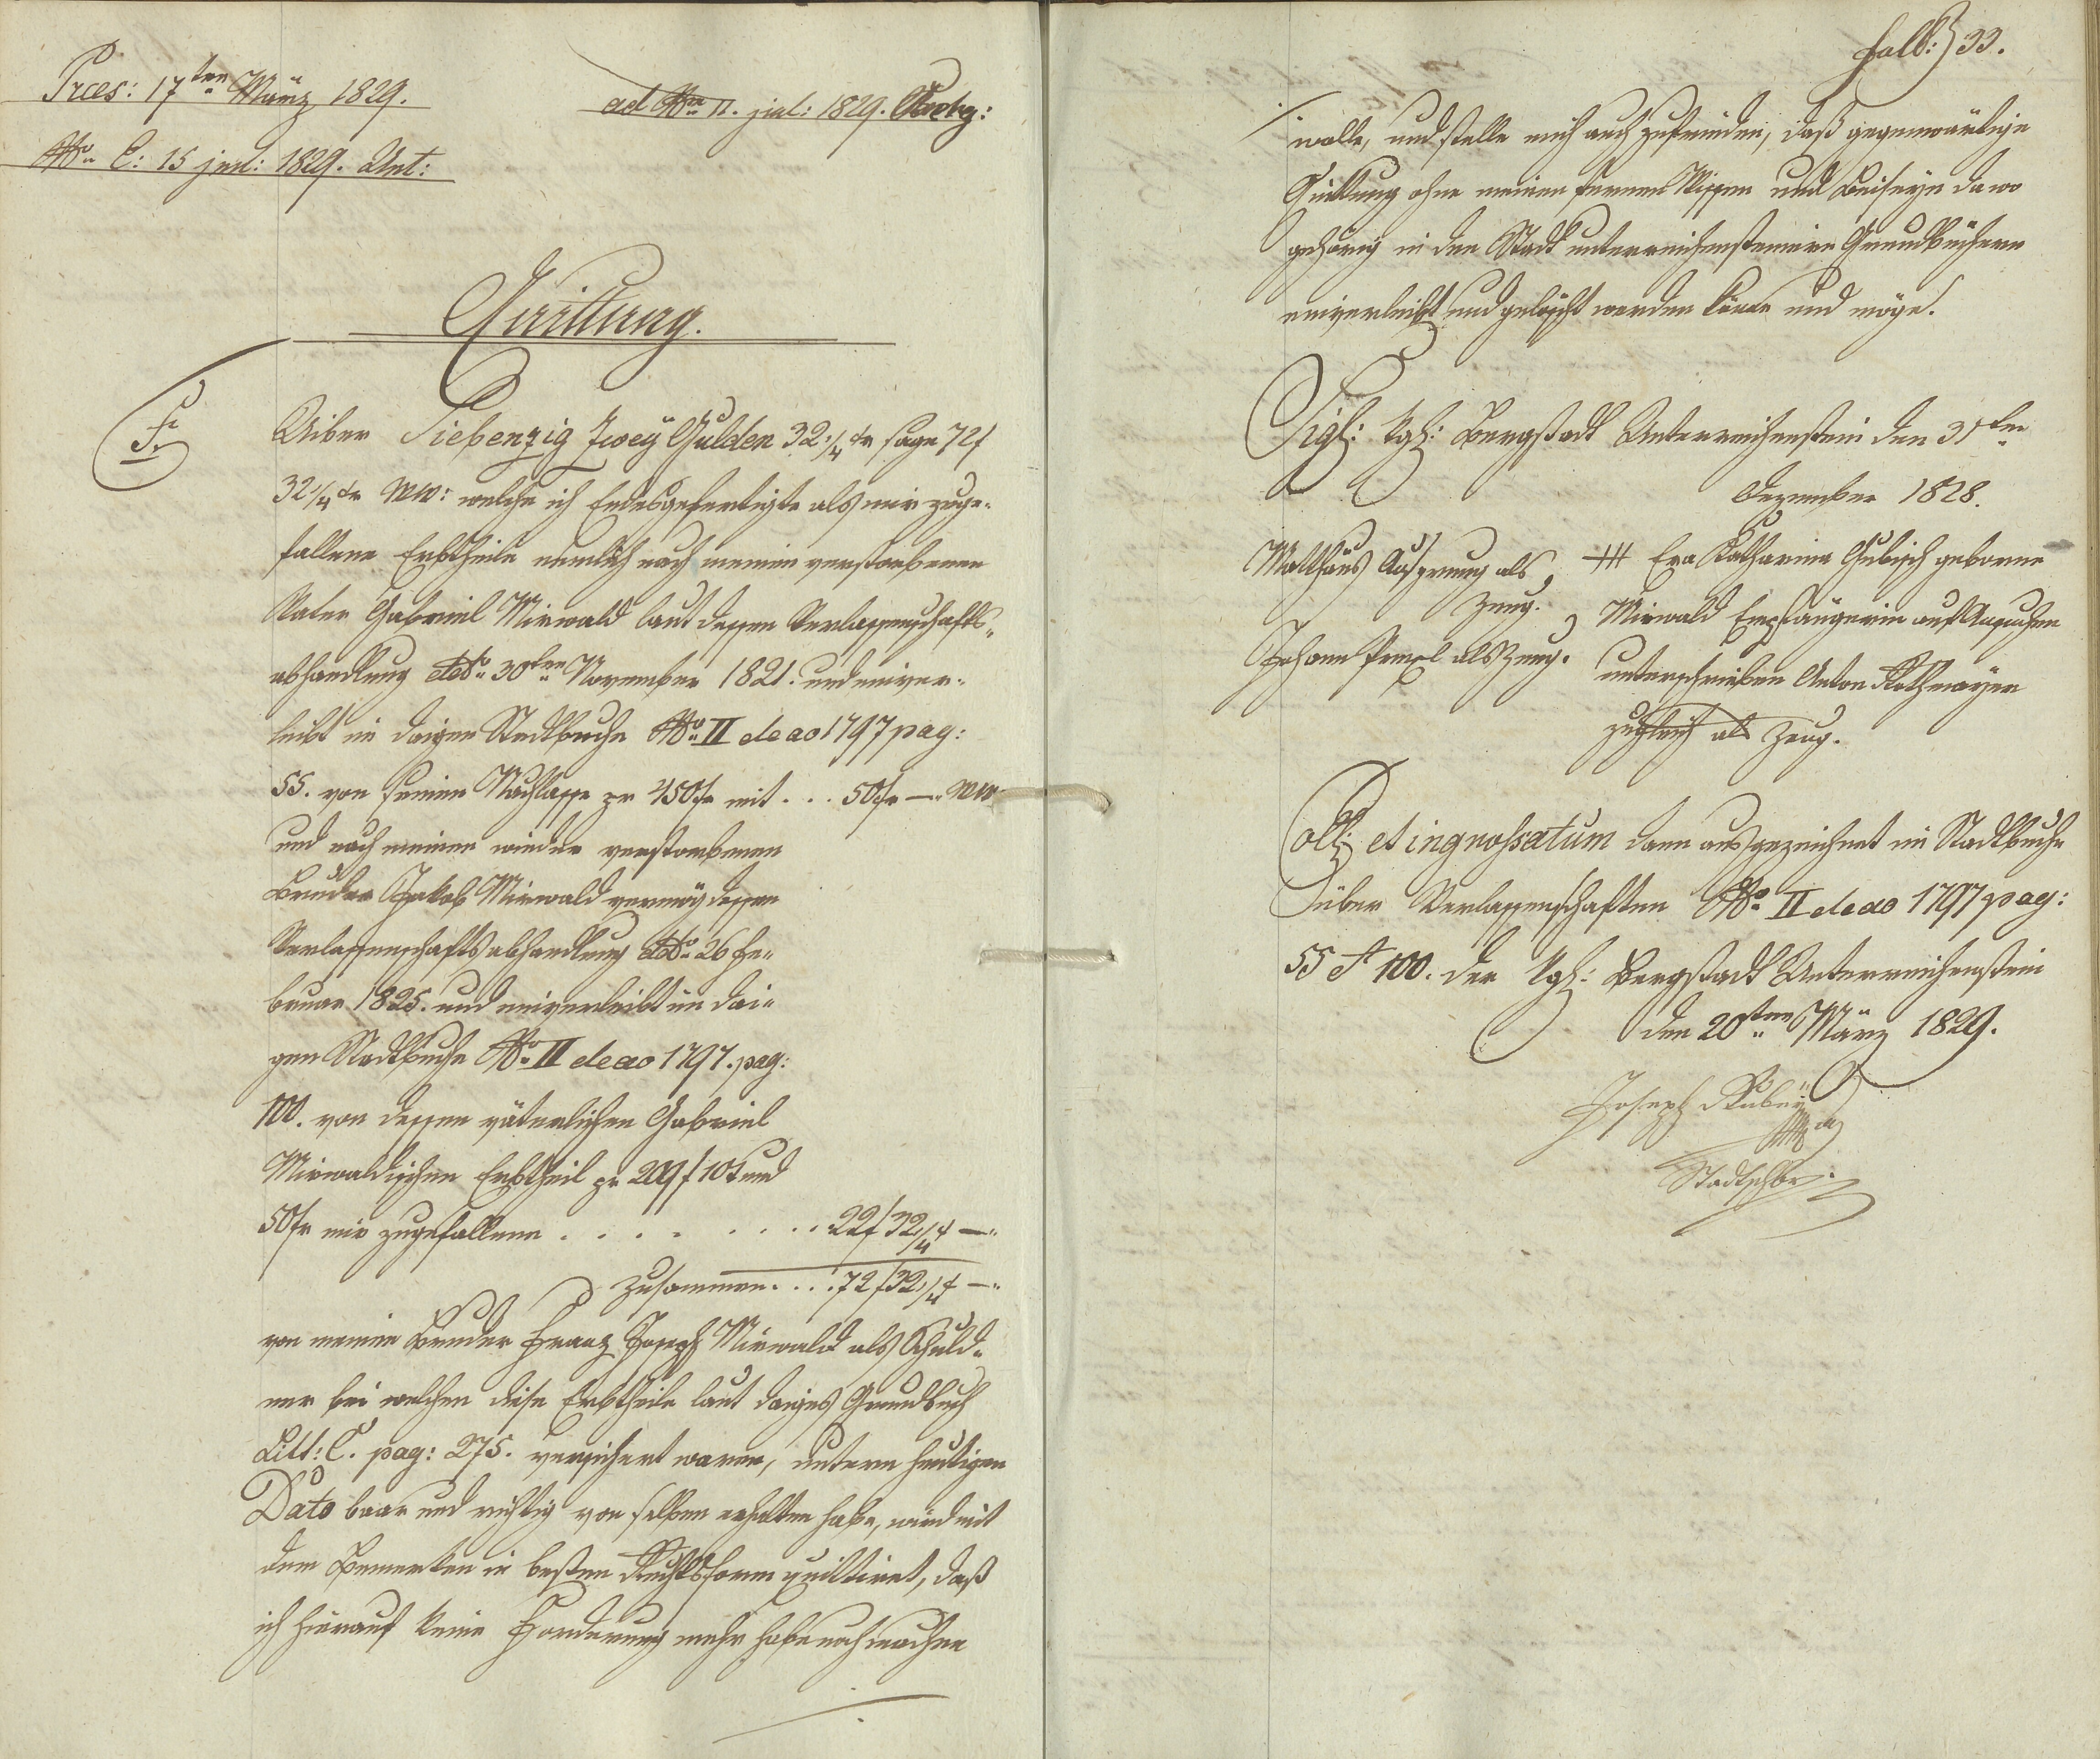 Præs: 17ten März 1829.
No E: 15 jud: 1829. Unt:
ad Nrm 11. jud: 1829.
Quittung.
Uiber Siebenzig Zwey Gulden 32 1/4 xr sage 72 f
32 1/4 xr WW: welche ich Endesgefertigte als mir zuge-
fallene Erbtheile nemlich nach meinen verstorbenen
Vater Gabriel Mirwald laut dessen Verlassenschafts-
abhandlung ddto 30ten November 1821. und einver-
leibt in daigen Stadtbuche No II de ao 1797 pag:
55. von seinen Nachlasse pr 450 fr mit . . . 50 fr — WW
und nach meinen wieder verstorbenen
Bruder Jakob Mirwald vermög dessen
Verlassenschaftsabhandlung ddto 26 Fe-
bruar 1825. und einverleibt im dai-
gen Stadtbuche No II de ao 1797. pag:
100. von dessen väterlichen Gabriel
Mirwaldischen Erbtheil pr 209 f 10 x und
50 fr mir zugefallene . . . . . . . . 22 f 32 1/4 x —"
Zusammen . . . 72 f 32 1/4 x —"
von meinen Bruder Franz Joseph Mirwald als Schuld-
ner bei welchen diese Erbtheile laut daiges Grundbuch
Litt: C. pag: 275. versichert waren, untern heutigen
Dato baar und richtig von selben erhalten habe, wird mit
dem Bemerken in besten Rechtsform quittiret, daß
ich hierauf keine Forderung mehr habe noch machen
33.
wolle, und stelle mich auch zufrieden, daß gegenwärtige
Quittung ohne meinen fernern Wissen und Beiseyn da wo
gehörig in den Stadt unterreichensteiner Grundbüchern
einverleibt und gelöscht werden könne und möge.
Sigl: kgl: Bergstadt Unterreichenstein den 31ten
Dezember 1828.
Matthäus als
Zeug.
Johann als Zeug.
+++ Eva Katharina Gubisch geborne
Mirwald Empfängerin auf Ansuchen
unterschrieben Anton Rothmayer
zugleich als Zeug.
Coll: et ingrossatum dann ausgezeichnet im Stadtbuche
über Verlassenschaften No II de ao 1797 pag:
55 et 100. der kgl: Bergstadt Unterreichenstein
den 20ten März 1829.
Joseph
Stadtschbr: